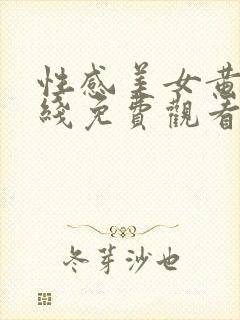 性感美女黄
线免費觀看
冬芽沙也